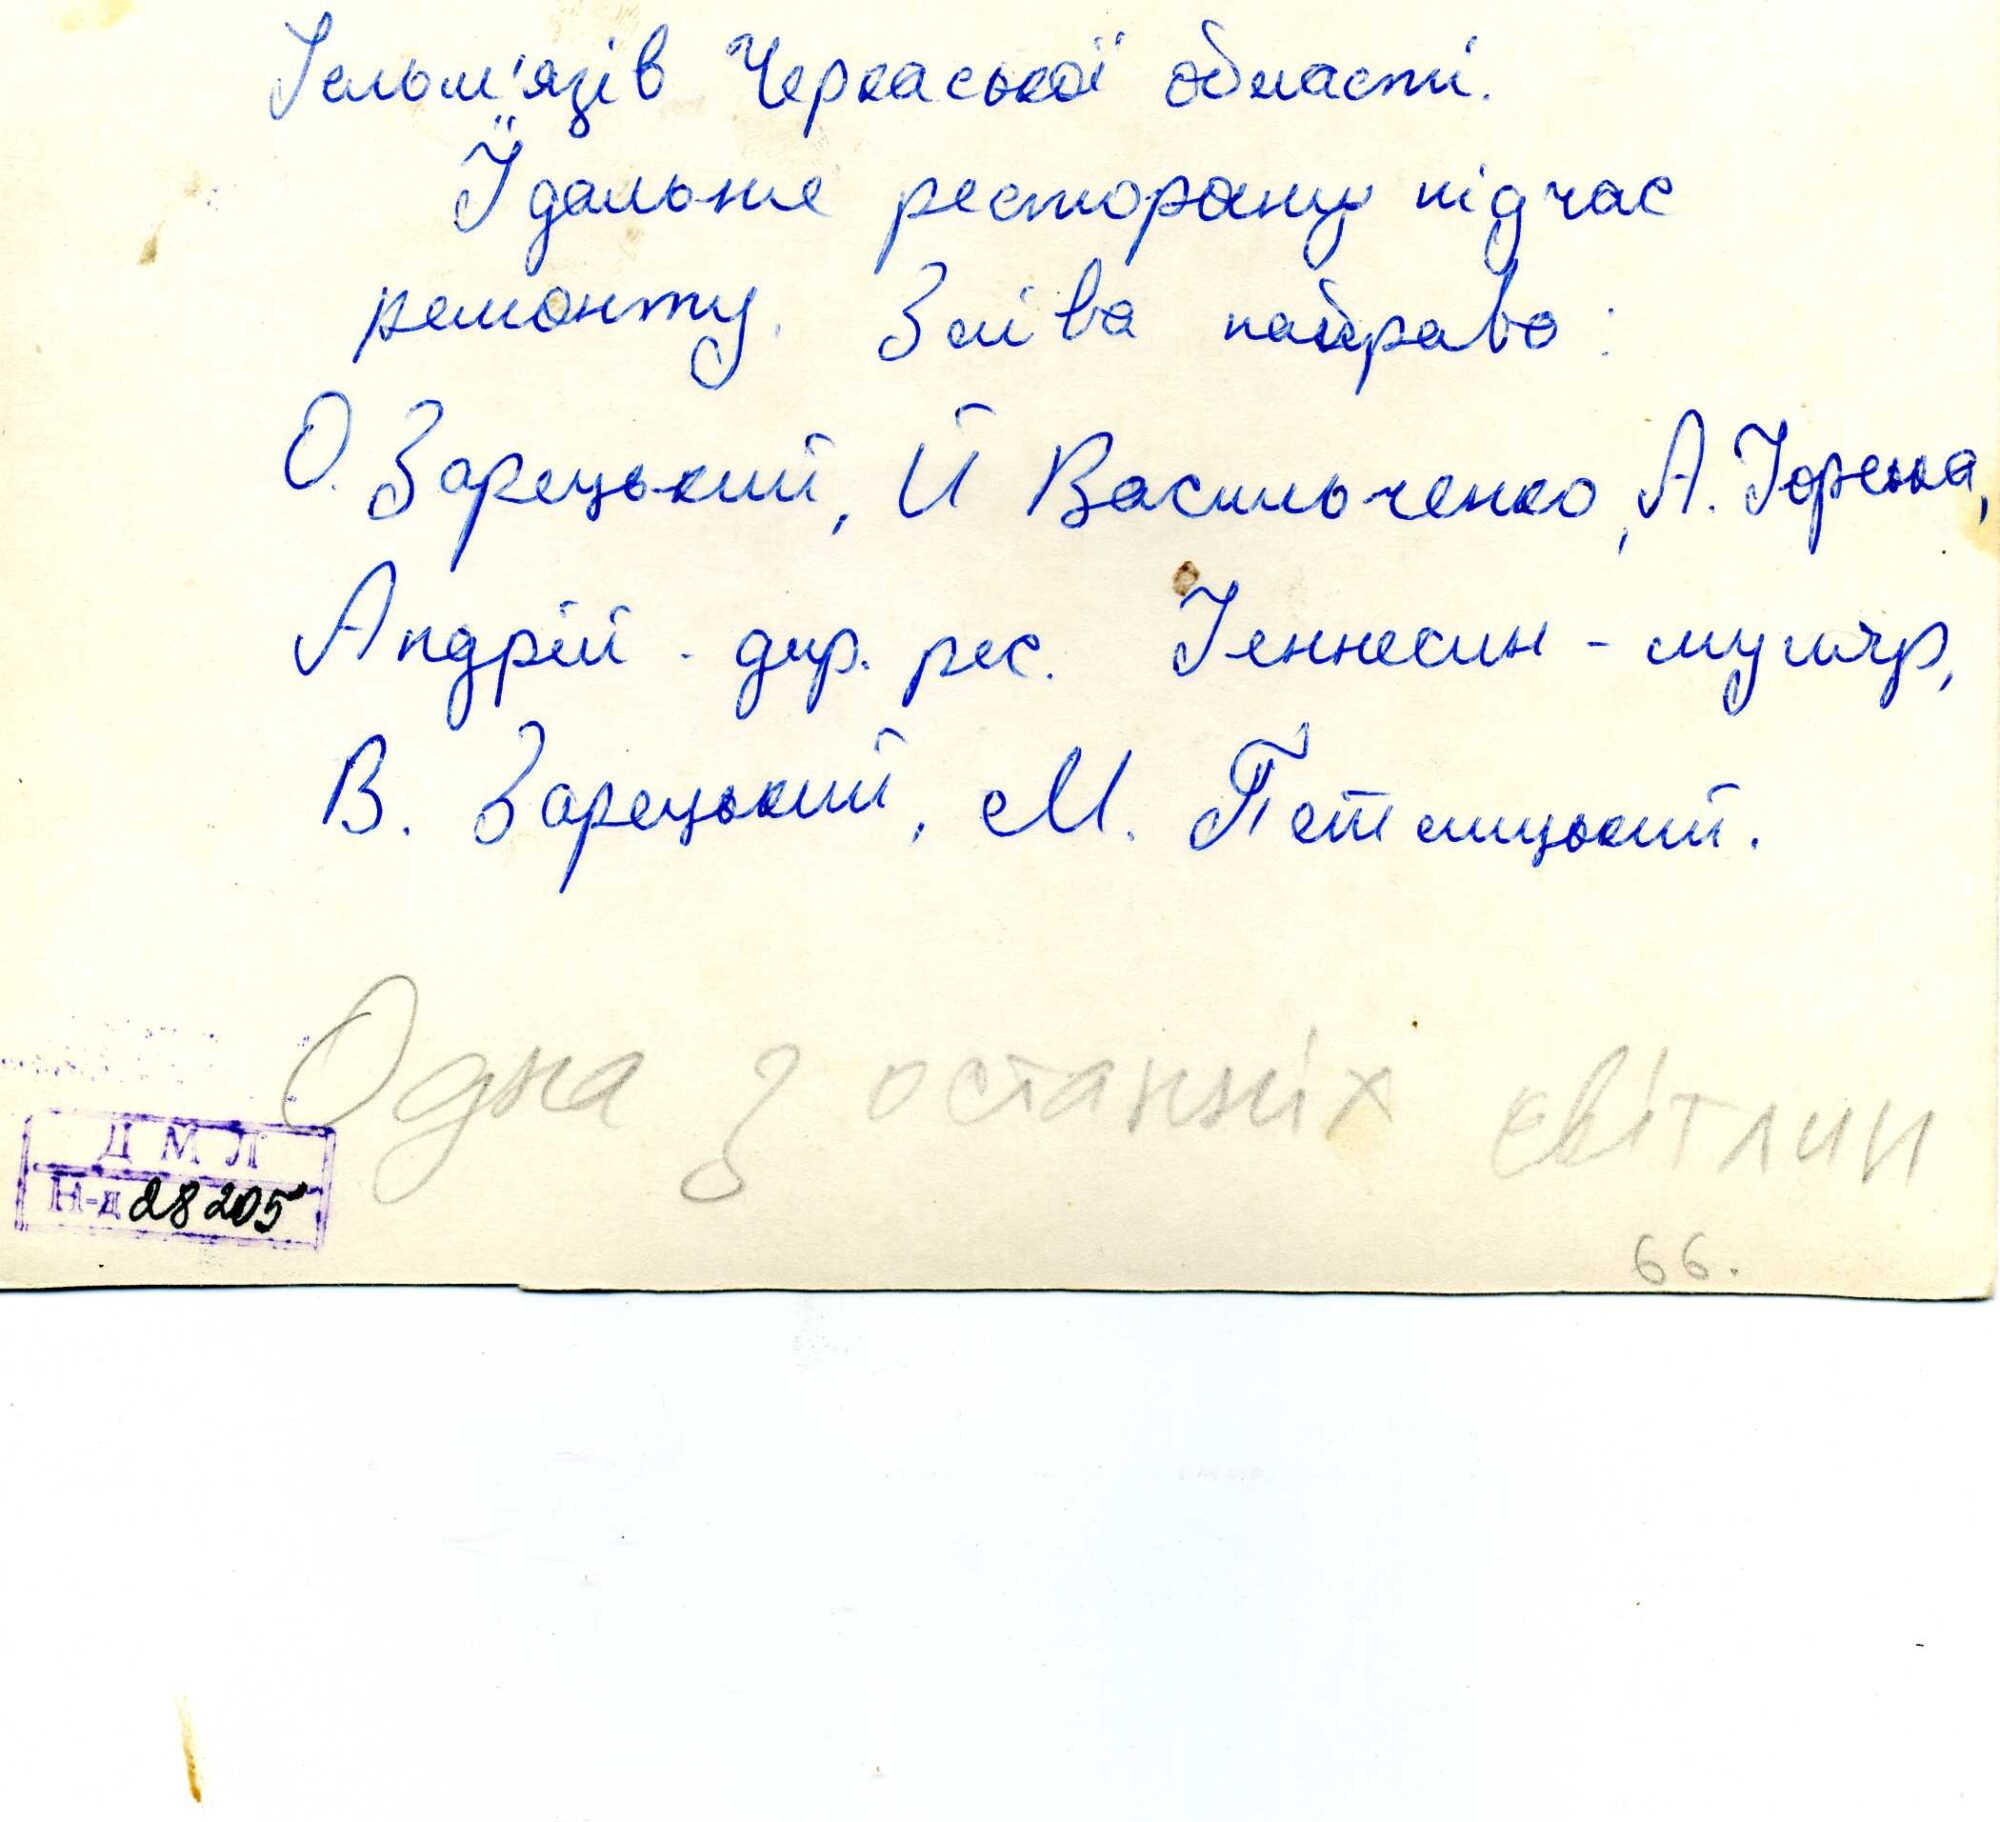 Гельм'язів Черкаської області.
Їдальне ресторану підчас
ремонту. Зліва направо:
О. Зарецький, Й Васильченко, А. Горська,
Андрій - дир. рес. Геннесин - муляр,
В. Зарецький, М. Плітницький.
Одна з останніх світлин
ДМЛ
Н-д 28205
66.